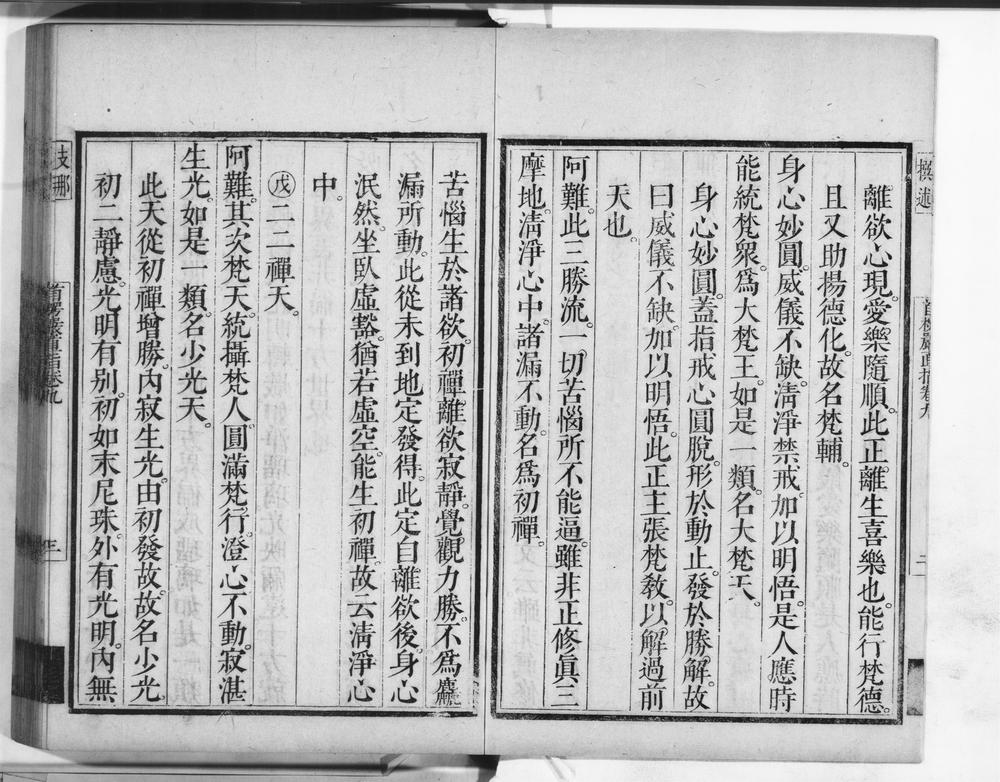 離欲心現。愛樂隨順。此正離生喜樂也。能行梵德。
且又助揚德化。故名梵輔。
身心妙圓。威儀不缺。清淨禁戒。加以明悟。是人應時
能統梵眾。為大梵王。如是一類。名大梵天。
身心妙圓。蓋指戒心圓脫。形於動止。發於勝解。故
曰威儀不缺。加以明悟。此正主張梵教。以解過前
天也。
阿難。此三勝流。一切苦惱所不能逼。雖非正修眞三
摩地。清淨心中。諸漏不動。名爲初禪。
苦惱生於諸欲。初禪離欲寂靜。覺觀力勝。不爲麤
漏所動。此從未到地定發得。此定自離欲後。身心
泯然。坐臥虛豁。猶若虛空。能生初禪。故云清淨心
中。
戊二二禪天。
阿難。其次梵天。統攝梵人。圓滿梵行。澄心不動。寂湛
生光。如是一類。名少光天。
此天從初禪增勝。內寂生光。由初發故。故名少光。
初二靜慮。光明有别。初如末尼珠。外有光明。內無